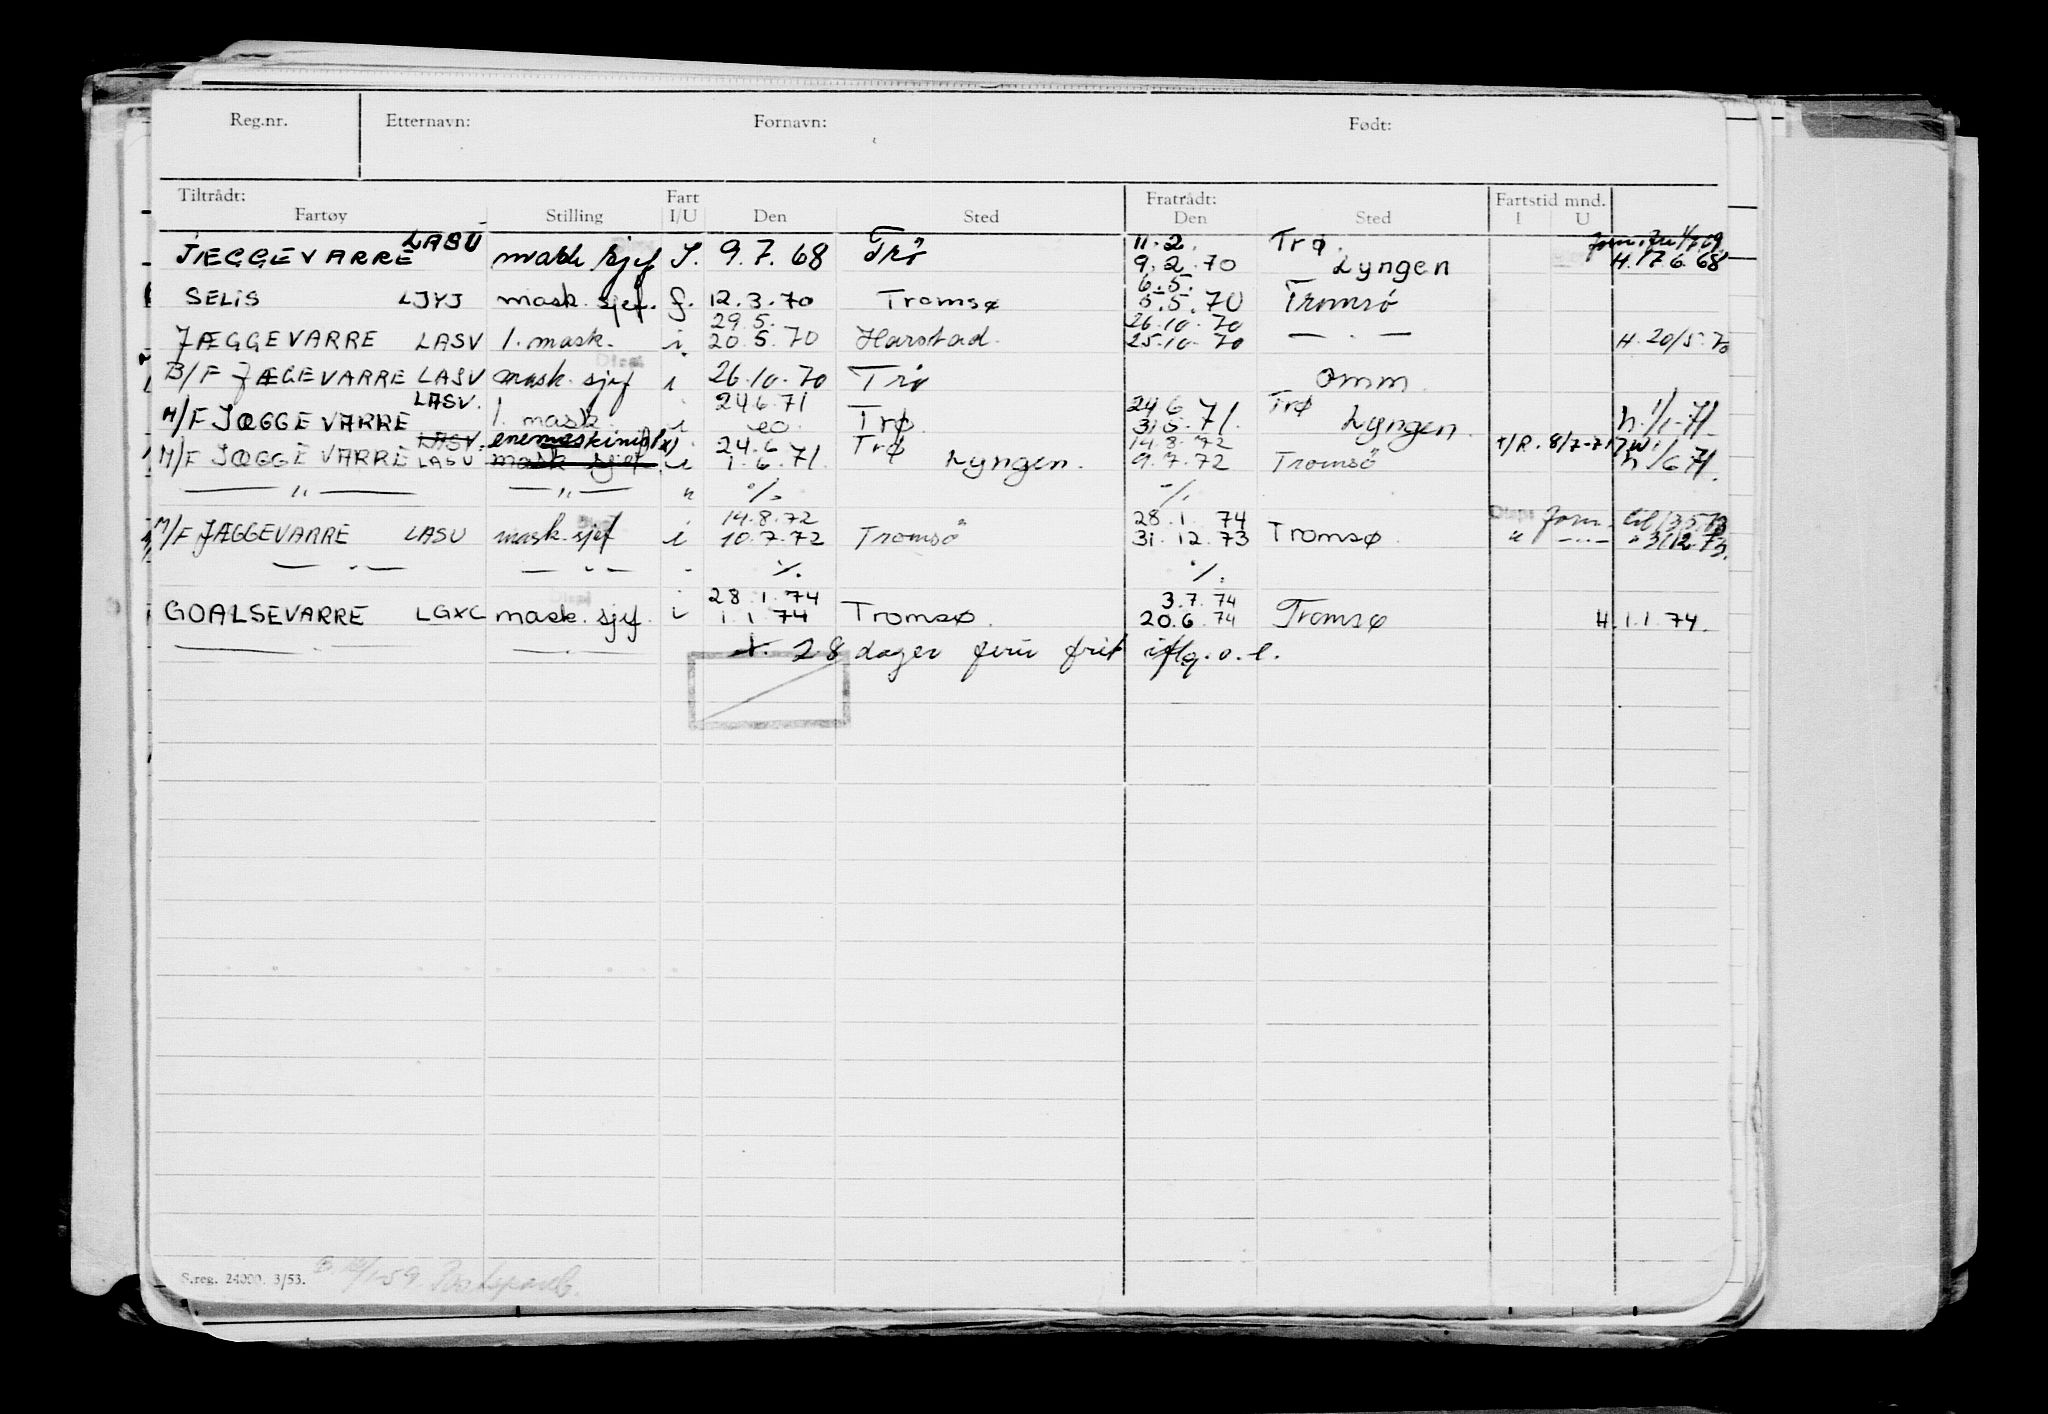 Reg.nr. Etternavn: Fornavn: Født:
Tiltrådt: Fart Fratrådt: Fartstid mnd.
Fartøy Stilling I/U Den Sted Den Sted I U
LASU 11.2. Trø.
JÆGGEVARRE mask sjef I. 9.7.68 Trö 9.2.70 Lyngen H. 17.6.68
6.5.
SELIS LJYJ mask. sjef. f. 12.3.70 Tromsø 5.5.70 Tromsö
29.5. 26.10.70
JÆGGEVARRE LASV 1. mask. i 20.5.70 Harstad. 25.10.70 — . — H. 20/5.70
B/F JÆGEVARRE LASV mask. sjef i 26.10.70 Trö omm.
LASV. 24.6.71 24.6 Trø
M/F JÆGGEVARRE 1. mask. i eo. Trø. 31.5.71. Lyngen. h. 1/1-71
LASV. enemaskinist x) 24.6 Trø 14.8.72 x/R. 8/7-71
M/F JÆGGEVARRE LASU mask. sjef. i 1.6.71. Lyngen. 9.7.72 Tromsö h 1/6 71.
— " — — " — " ./. ./.
14.8.72 28.1.74 Disp. form.
M/F JÆGGEVARRE LASU mask. sjef i 10.7.72 Tromsö 31.12.73 Tromsø " — . — " 31/12.73.
— " — — " — - ./. ./.
28.1.74 3.7.74
GOALSEVARRE LGXC mask. sjef. i 1.1.74 Tromsø. 20.6.74 Tromsø H. 1.1.74.
— . — — . — + 28 dager ferie frit iflg. o. l.
S.reg. 24000. 3/53.